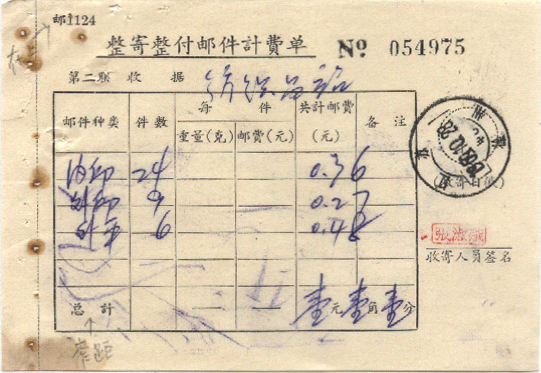 邮1124
整寄整付邮件計費单 № 054975
第二联 收 据
邮件种类 件数 每 件 共計邮費(元) 备 注
重量(克) 邮費(元)
内印 24 0.36
外印 9 0.27
外平 6 0.48
(收寄日戳)
收寄人员签名
总 計 — — 壹元壹角壹分
窄距